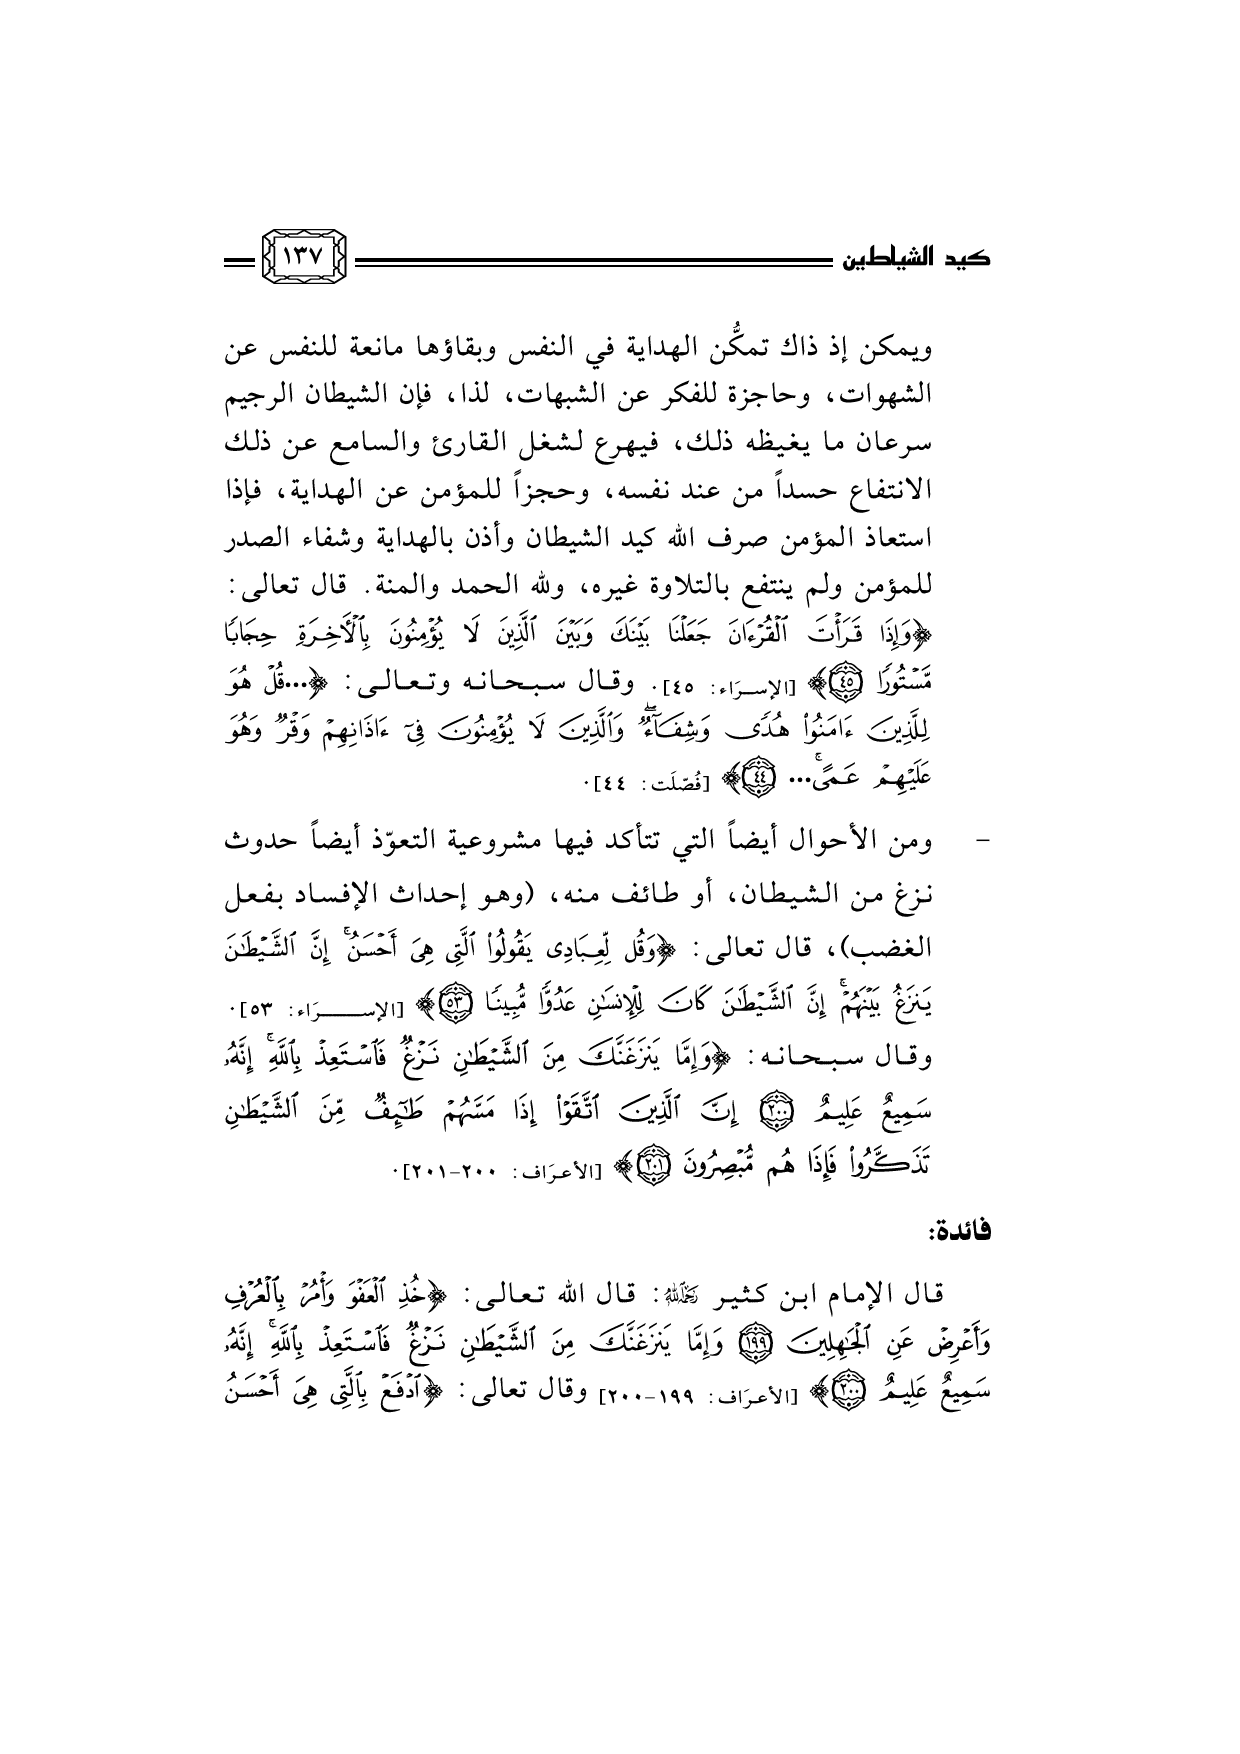 كيد الشياطين ١٣٧
ويمكن إذ ذاك تمكُّن الهداية في النفس وبقاؤها مانعة للنفس عن
الشهوات، وحاجزة للفكر عن الشبهات، لذا، فإن الشيطان الرجيم
سرعان ما يغيظه ذلك، فيهرع لشغل القارئ والسامع عن ذلك
الانتفاع حسداً من عند نفسه، وحجزاً للمؤمن عن الهداية، فإذا
استعاذ المؤمن صرف الله كيد الشيطان وأذن بالهداية وشفاء الصدر
للمؤمن ولم ينتفع بالتلاوة غيره، ولله الحمد والمنة. قال تعالى:
﴿وَإِذَا قَرَأْتَ ٱلْقُرْءَانَ جَعَلْنَا بَيْنَكَ وَبَيْنَ ٱلَّذِينَ لَا يُؤْمِنُونَ بِٱلْأَخِرَةِ حِجَابًا
مَّسْتُورًا ٤٥﴾ [الإسرَاء: ٤٥]. وقال سبحانه وتعالى: ﴿...قُلْ هُوَ
لِلَّذِينَ ءَامَنُوا۟ هُدًى وَشِفَآءٌ ۖ وَٱلَّذِينَ لَا يُؤْمِنُونَ فِىٓ ءَاذَانِهِمْ وَقْرٌ وَهُوَ
عَلَيْهِمْ عَمًى ۚ... ٤٤﴾ [فُصّلَت: ٤٤].
- ومن الأحوال أيضاً التي تتأكد فيها مشروعية التعوّذ أيضاً حدوث
نزغ من الشيطان، أو طائف منه، (وهو إحداث الإفساد بفعل
الغضب)، قال تعالى: ﴿وَقُل لِّعِبَادِى يَقُولُوا۟ ٱلَّتِى هِىَ أَحْسَنُ ۚ إِنَّ ٱلشَّيْطَـٰنَ
يَنزَغُ بَيْنَهُمْ ۚ إِنَّ ٱلشَّيْطَـٰنَ كَانَ لِلْإِنسَـٰنِ عَدُوًّا مُّبِينًا ٥٣﴾ [الإسرَاء: ٥٣].
وقال سبحانه: ﴿وَإِمَّا يَنزَغَنَّكَ مِنَ ٱلشَّيْطَـٰنِ نَزْغٌ فَٱسْتَعِذْ بِٱللَّهِ ۚ إِنَّهُۥ
سَمِيعٌ عَلِيمٌ ٢٠٠ إِنَّ ٱلَّذِينَ ٱتَّقَوْا۟ إِذَا مَسَّهُمْ طَـٰٓئِفٌ مِّنَ ٱلشَّيْطَـٰنِ
تَذَكَّرُوا۟ فَإِذَا هُم مُّبْصِرُونَ ٢٠١﴾ [الأعرَاف: ٢٠٠-٢٠١].
فائدة:
قال الإمام ابن كثير رَحِمَهُ ٱللَّهُ: قال الله تعالى: ﴿خُذِ ٱلْعَفْوَ وَأْمُرْ بِٱلْعُرْفِ
وَأَعْرِضْ عَنِ ٱلْجَـٰهِلِينَ ١٩٩ وَإِمَّا يَنزَغَنَّكَ مِنَ ٱلشَّيْطَـٰنِ نَزْغٌ فَٱسْتَعِذْ بِٱللَّهِ ۚ إِنَّهُۥ
سَمِيعٌ عَلِيمٌ ٢٠٠﴾ [الأعرَاف: ١٩٩-٢٠٠] وقال تعالى: ﴿ٱدْفَعْ بِٱلَّتِى هِىَ أَحْسَنُ